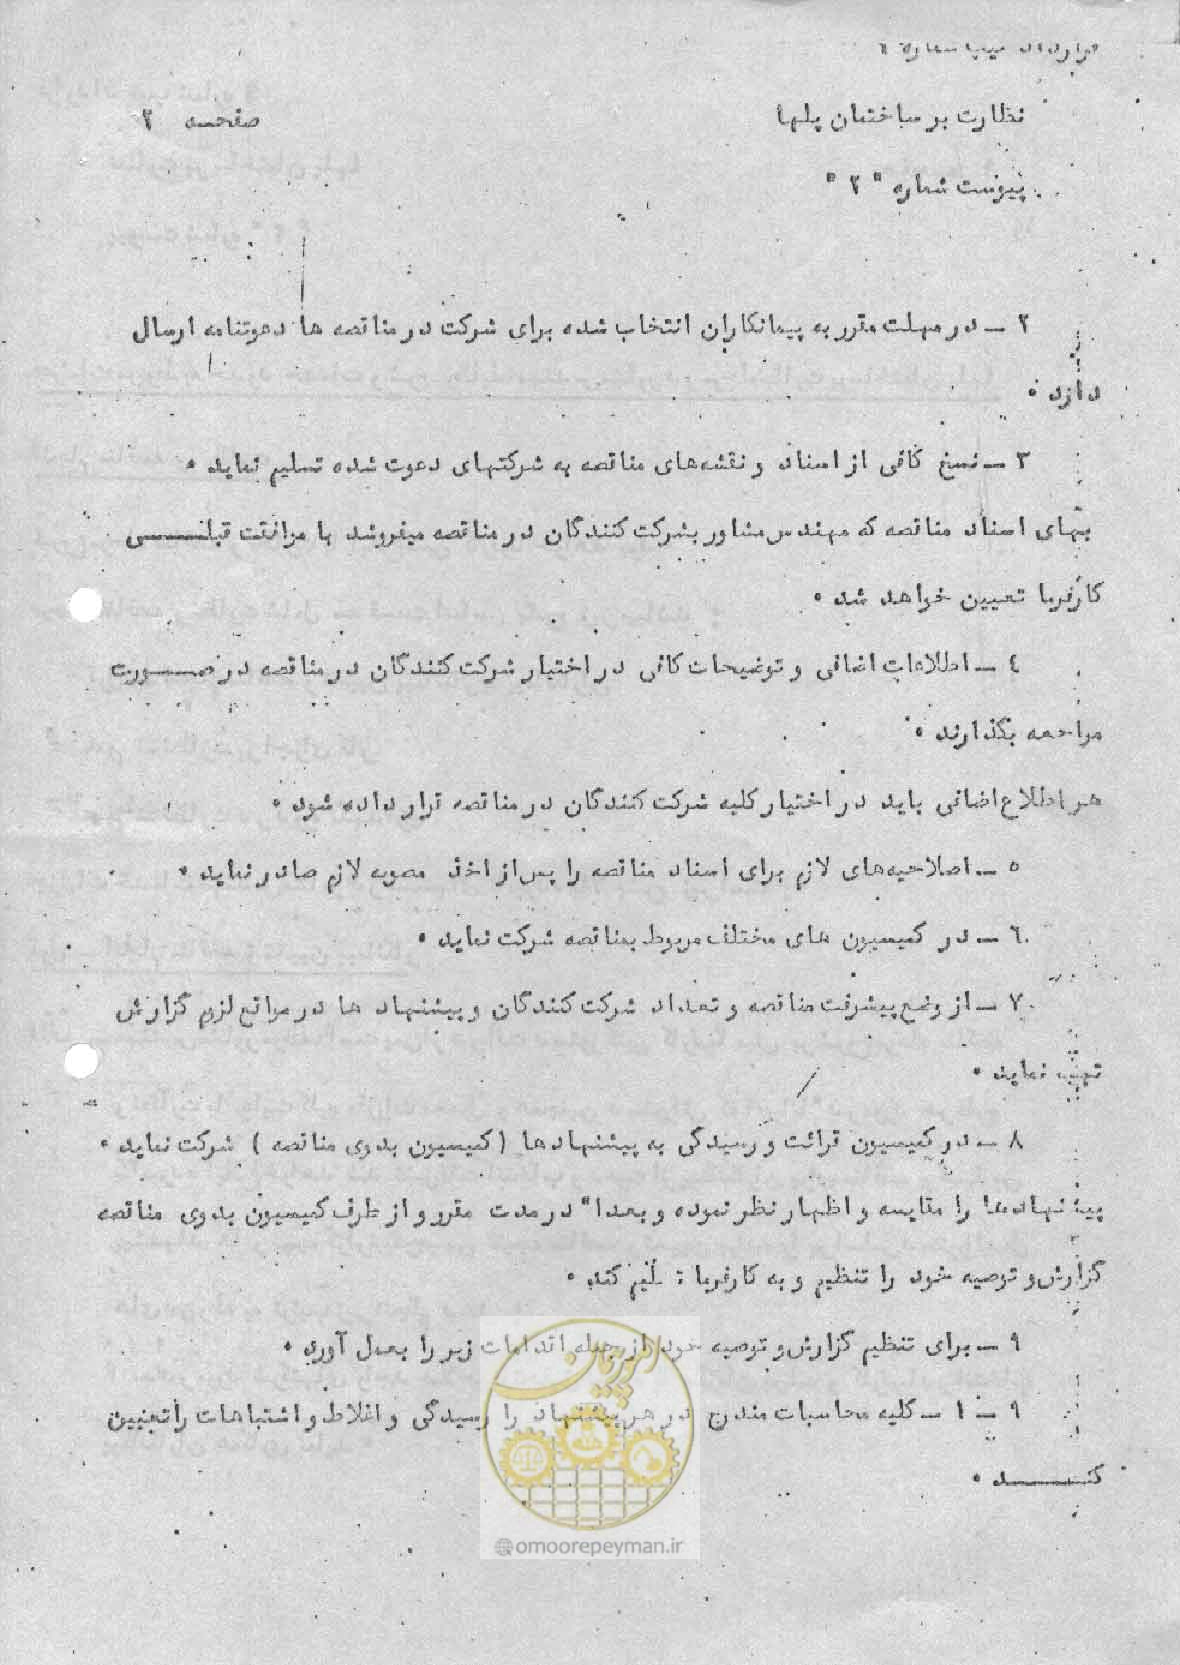 قرارداد تیپ شماره ٦
نظارت بر ساختمان پلها
صفحه ۲
پیوست شماره " ۲ "
۲ - در مهلت مقرر به پیمانکاران انتخاب شده برای شرکت در مناقصه ها دعوتنامه ارسال
دارند .
۳ - نسخ کافی از اسناد و نقشه‌های مناقصه به شرکتهای دعوت شده تسلیم نماید .
بهای اسناد مناقصه که مهندس مشاور بشرکت کنندگان در مناقصه میفروشد با موافقت قبلـــی
کارفرما تعیین خواهد شد .
٤ - اطلاعات اضافی و توضیحات کافی در اختیار شرکت کنندگان در مناقصه در صـــورت
مراجعه بگذارند .
هر اطلاع اضافی باید در اختیار کلیه شرکت کنندگان در مناقصه قرار داده شود .
٥ - اصلاحیه‌های لازم برای اسناد مناقصه را پس از اخذ مصوبه لازم صادر نماید .
٦ - در کمیسیون های مختلف مربوط بمناقصه شرکت نماید .
۷ - از وضع پیشرفت مناقصه و تعداد شرکت کنندگان و پیشنهاد ها در مواقع لزوم گزارش
تهیه نماید .
۸ - در کمیسیون قرائت و رسیدگی به پیشنهادها ( کمیسیون بدوی مناقصه ) شرکت نماید .
پیشنهادها را مقایسه و اظهار نظر نموده و بعدا" در مدت مقرر و از طرف کمیسیون بدوی مناقصه
گزارش و توصیه خود را تنظیم و به کارفرما تسلیم کند .
۹ - برای تنظیم گزارش و توصیه خود از جمله اقدامات زیر را بعمل آورد .
۹ - ۱ - کلیه محاسبات مندرج در هر پیشنهاد را رسیدگی و اغلاط و اشتباهات را تعیین
کنـــد .
امور پیمان
@omoorepeyman.ir